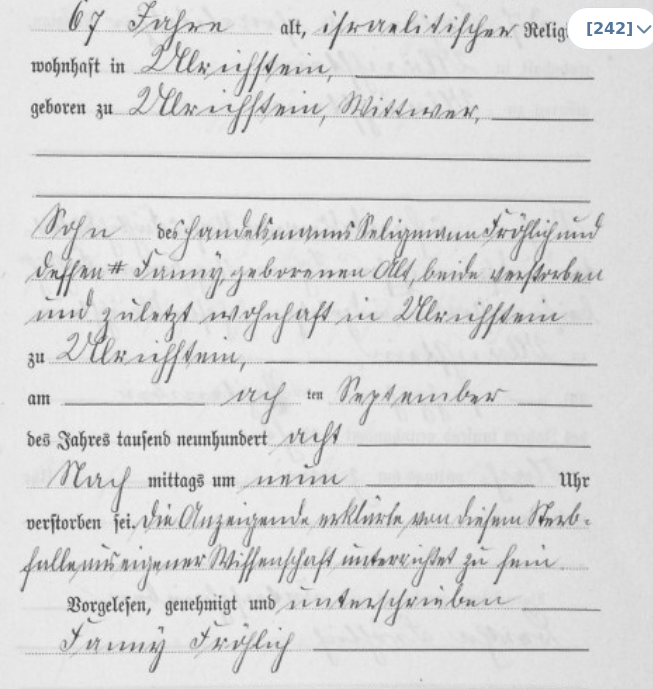 67 Jahre alt, israelitischer Relig
[242]
wohnhaft in Ulrichstein,
geboren zu Ulrichstein, Wittwer,
Sohn des Handelsmanns Seligmann Fröhlich und
dessen # Fanny, geborenen Alt, beide verstorben
und zuletzt wohnhaft in Ulrichstein
zu Ulrichstein,
am ach ten September
des Jahres tausend neunhundert acht
Nach mittags um neun Uhr
verstorben sei. Die Anzeigende erklärte von diesem Sterb-
falle aus eigener Wissenschaft unterrichtet zu sein.
Vorgelesen, genehmigt und unterschrieben
Fanny Fröhlich